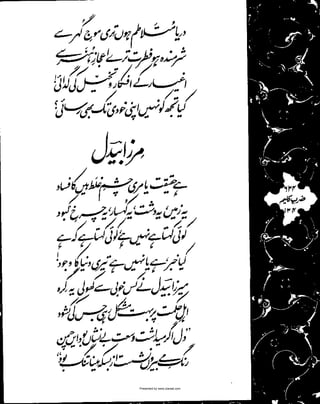 دریا متلاطم ہوں تری موجِ گہر سے
شرمندہ ہو فطرت ترے اعجازِ ہنر سے
اغیار کے افکار و تخیل کی گدائی!
کیا تجھ کو نہیں اپنی خودی تک بھی رسائی؟
مرزا بیدل
ہے حقیقت یا مری چشمِ غلط بیں کا فساد
یہ زمیں، یہ دشت، یہ کہسار، یہ چرخِ کبود
کوئی کہتا ہے نہیں ہے، کوئی کہتا ہے کہ ہے
کیا خبر، ہے یا نہیں ہے تیری دنیا کا وجود!
میرزا بیدل نے کس خوبی سے کھولی یہ گرہ
اہلِ حکمت پر بہت مشکل رہی جس کی کشود!
"دل اگر میداشت وسعت بے نشاں بود ایں چمن
رنگِ مے بیروں نشست از بسکہ مینا تنگ بود"
ضربِ کلیم